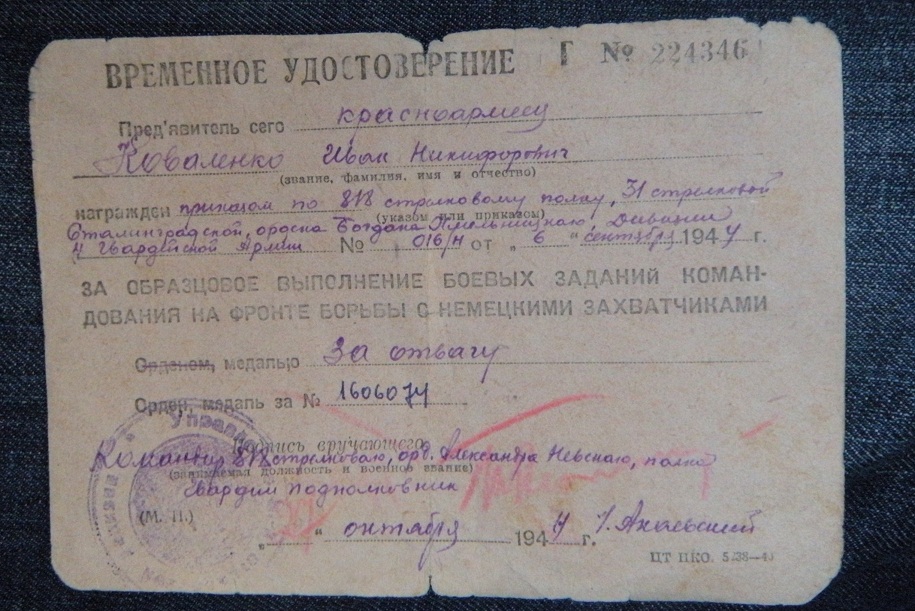 ВРЕМЕННОЕ УДОСТОВЕРЕНИЕ Г № 224346
Пред'явитель сего красноармеец
Коваленко Иван Никифорович
(звание, фамилия, имя и отчество)
награжден приказом по 818 стрелковому полку, 31 стрелковой
(указом или приказом)
Сталинградской, ордена Богдана Хмельницкого, Дивизии
4 Гвардейской Армии № 016/н от „ 6 “ сентября 1944 г.
ЗА ОБРАЗЦОВОЕ ВЫПОЛНЕНИЕ БОЕВЫХ ЗАДАНИЙ КОМАН-
ДОВАНИЯ НА ФРОНТЕ БОРЬБЫ С НЕМЕЦКИМИ ЗАХВАТЧИКАМИ
Орденом, медалью За отвагу
Орден, медаль за № 1606074
Подпись вручающего
Командир 818 стрелкового, орд. Александра Невского, полка
(занимаемая должность и военное звание)
гвардии подполковник
(М. П.)
„ “ октября 1944 г.
ЦТ НКО. 5/38-4
Управл